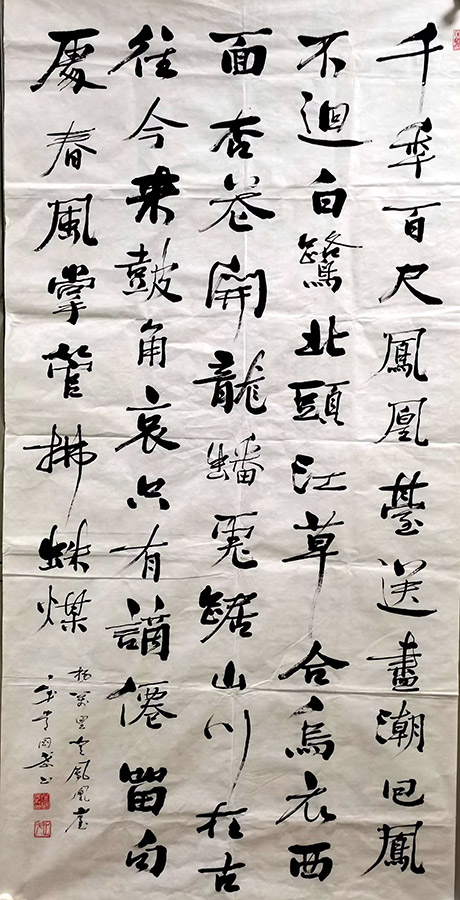 千年百尺鳳凰臺送盡潮回鳳
不迴白鷺北頭江草合烏衣西
面杏花開龍蟠虎踞山川在古
往今來鼓角哀只有謫僊留句
處春風掌管拂蛛煤
楊萬里登鳳凰臺